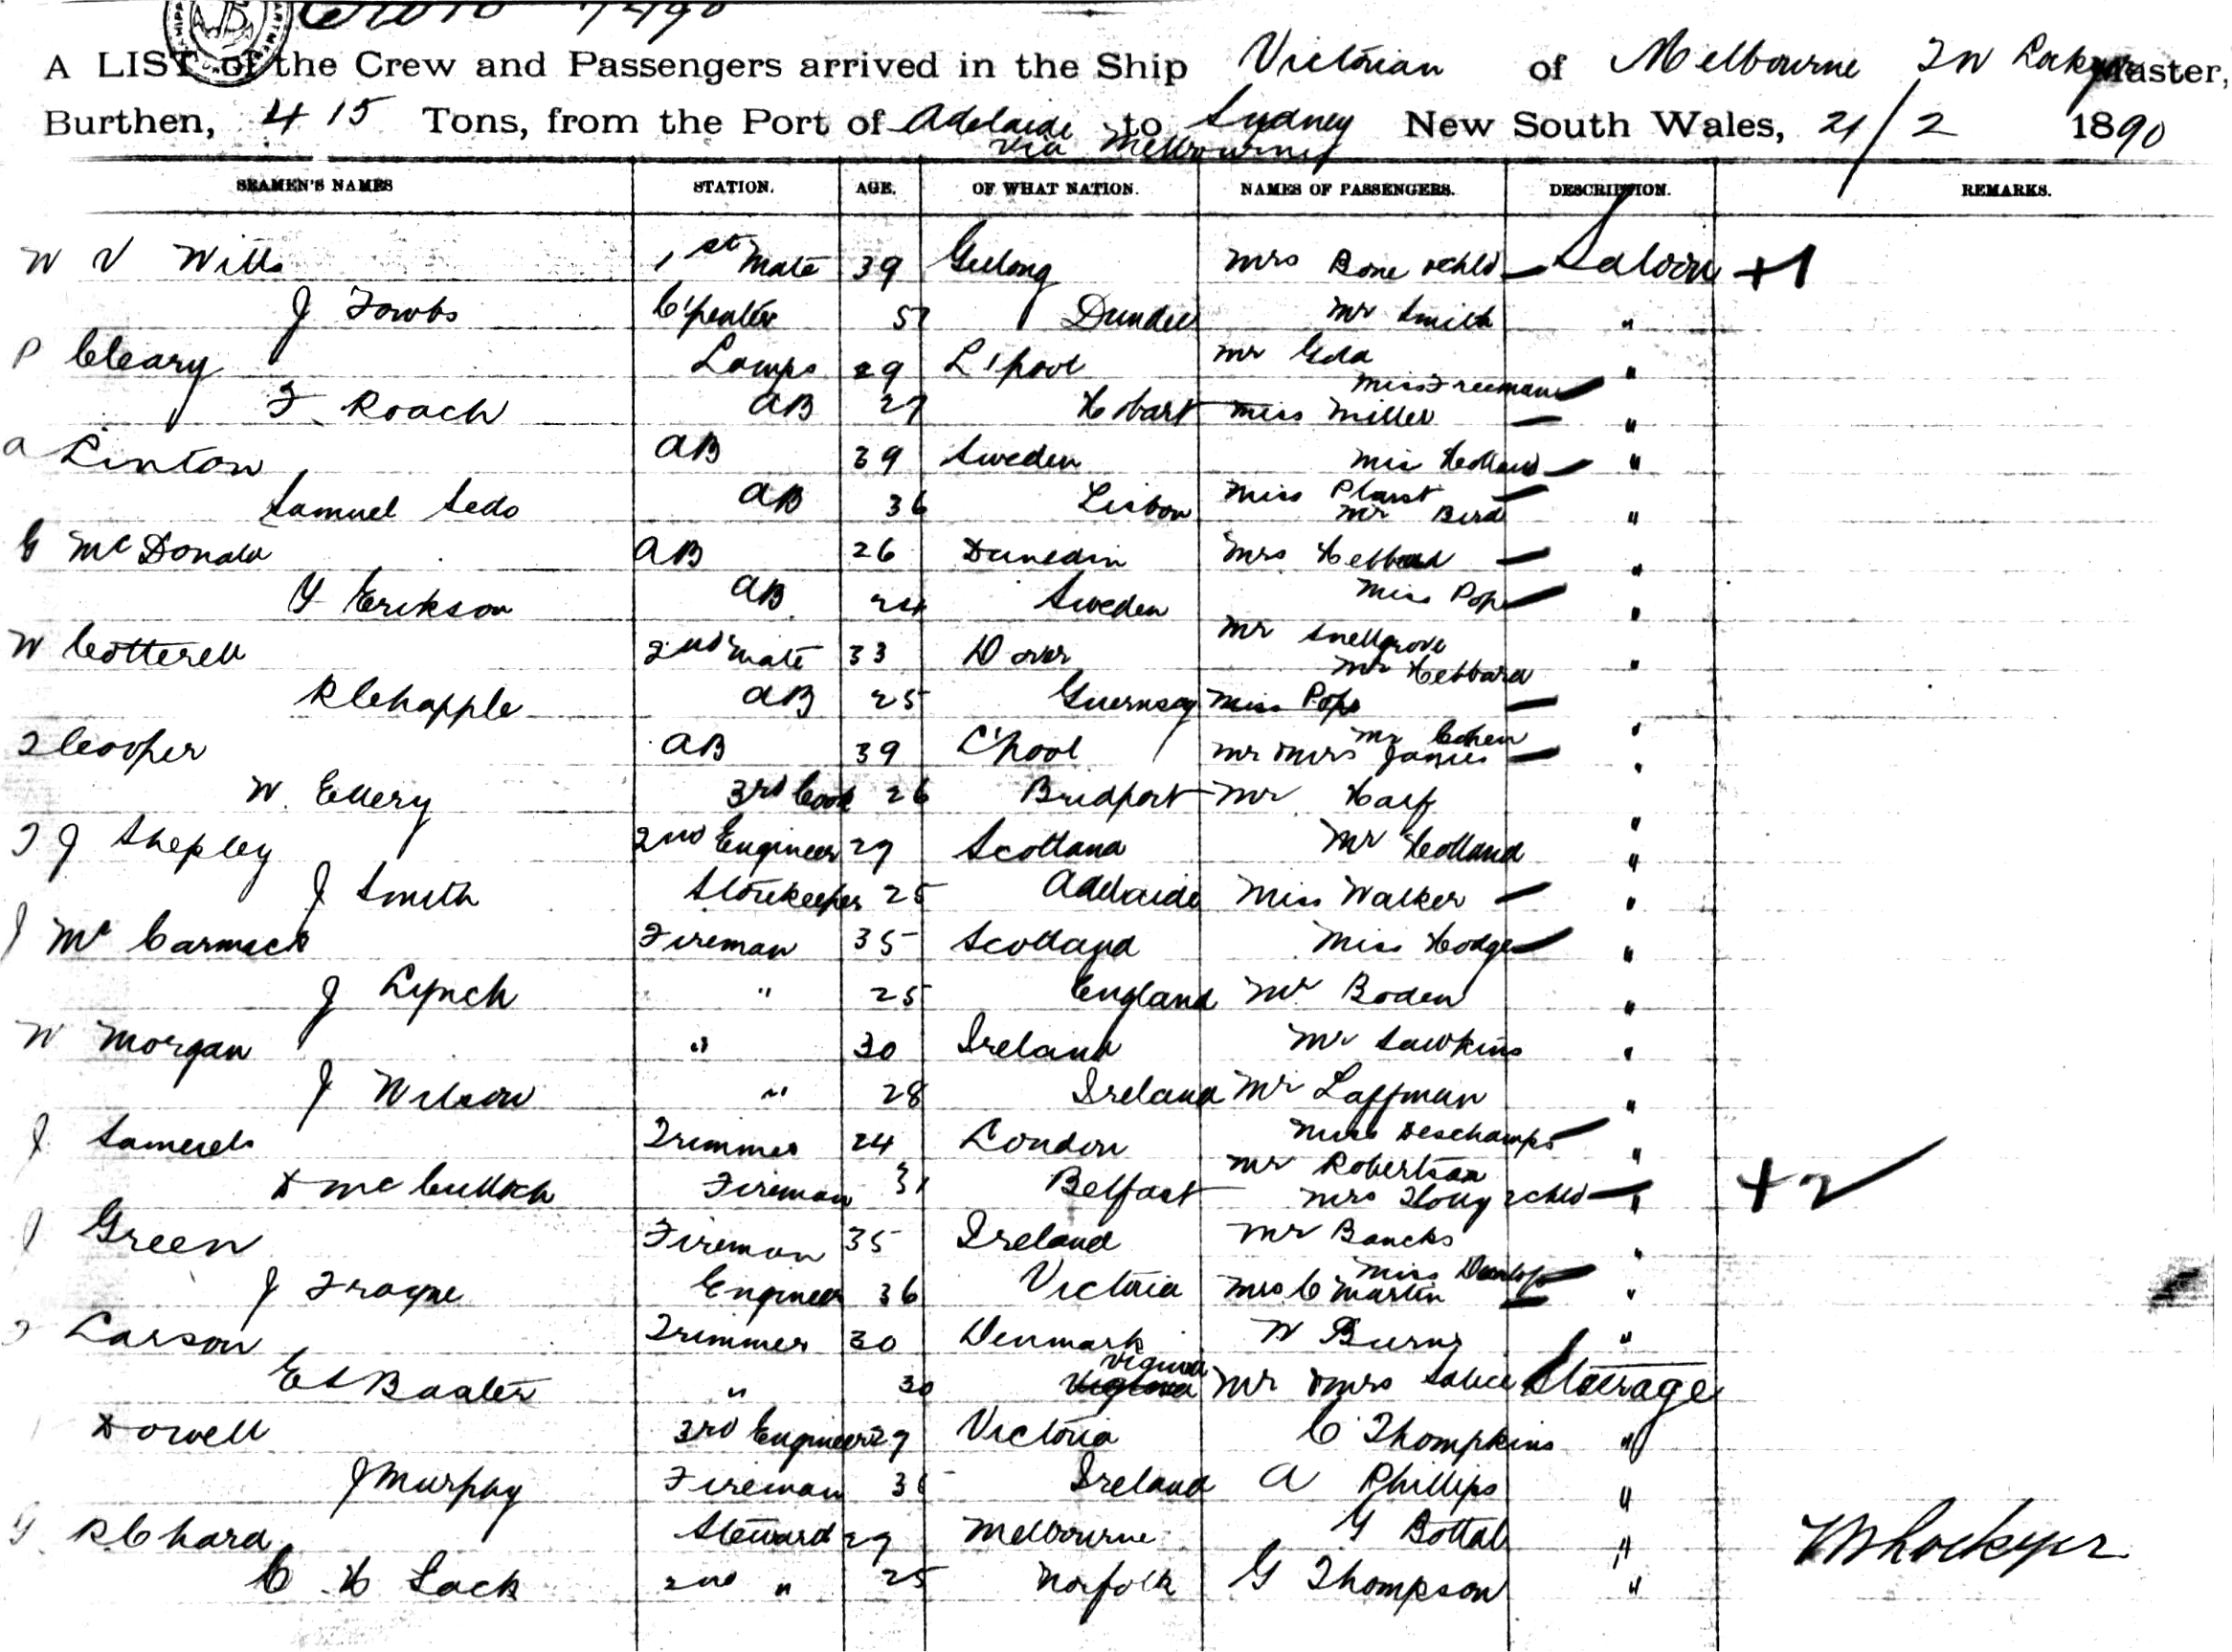 A LIST of the Crew and Passengers arrived in the Ship Victorian of Melbourne T W Lockyer Master,
Burthen, 415 Tons, from the Port of Adelaide to Sydney New South Wales, 21/2 1890
via Melbourne
SEAMEN'S NAMES STATION. AGE. OF WHAT NATION. NAMES OF PASSENGERS. DESCRIPTION. REMARKS.
W V Wills 1st Mate 39 Geelong Mrs Bone & Chld Saloon +1
J 57 Dundee Mr Smith "
P Cleary Lamps 29 L'pool Mr "
Miss Freeman
F Roach AB 27 Hobart Miss Miller "
A Linton AB 39 Sweden Mis Holland "
Samuel Sedo AB 36 Lisbon Miss
Mr Bird "
G McDonald AB 26 Dunedin Mrs Hebbard "
Y Erikson AB 24 Sweden Miss Pope "
W Cotterell 2nd Mate 33 Dover Mr Snellgrove
Mr Hebbard "
R Chapple AB 25 Guernsey Miss Pope
Mr Cohen "
T Cooper AB 39 L'pool Mr & Mrs James "
W. Ellery 3rd Cook 26 Bridport Mr Half "
T J Shepley 2nd Engineer 29 Scotland Mr Holland "
J Smith Storekeeper 25 Adelaide Miss Walker "
J McCarmack Fireman 35 Scotland Miss Hodge "
J Lynch " 25 England Mr Boden "
W Morgan " 30 Ireland Mr Sawkins "
J Wilson " 28 Ireland Mr Laffman "
J Samuels Trimmer 24 London Miss Deschamps "
Mr Robertson
D McCulloch Fireman 31 Belfast Mrs 2 Chld " +2
J Green Fireman 35 Ireland Mr Bancks "
Miss Dunlop
J Frayne Engineer 36 Victoria Mrs C Martin "
Larson Trimmer 30 Denmark W Burns "
Virginia
E S Baxter " 30 Mr & Mrs Steerage
Dowell 3rd Engineer 29 Victoria C Thompkins "
J Murphy Fireman 36 Ireland A Phillips "
G R Chard Steward 29 Melbourne Y Bottal "
C H Sack 2nd " 25 Norfolk G Thompson "
T W Lockyer